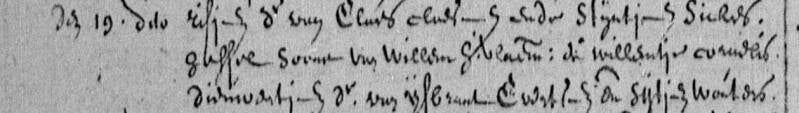 Den 19. dito Eefjen dr van Claes claesen ende Stijntjen Sickes.
soone van Willem : en willentje cornelis.
Diewertjen dr. van ijsbrant Evertsen en Sijtjen Wouters.